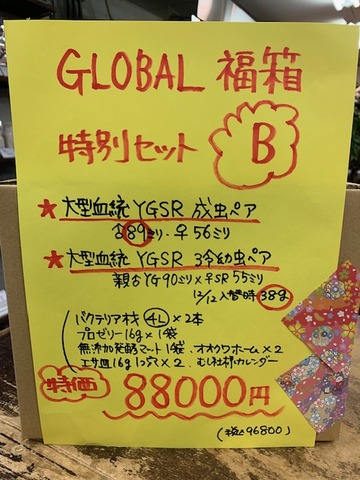 GLOBAL 福箱
特別セット B
★大型血統 YGSR 成虫ペア
♂89ミリ・♀56ミリ
★大型血統 YGSR 3令幼虫ペア
親♂YG90ミリ×♀SR55ミリ
12/12入替時38g
バクテリア材 4L×2本
プロゼリー16g×1袋
無添加発酵マット1袋、オオクワホーム×2
エサ皿16g1つ穴×2、むし社カレンダー
特価 88000円
(税込96800)